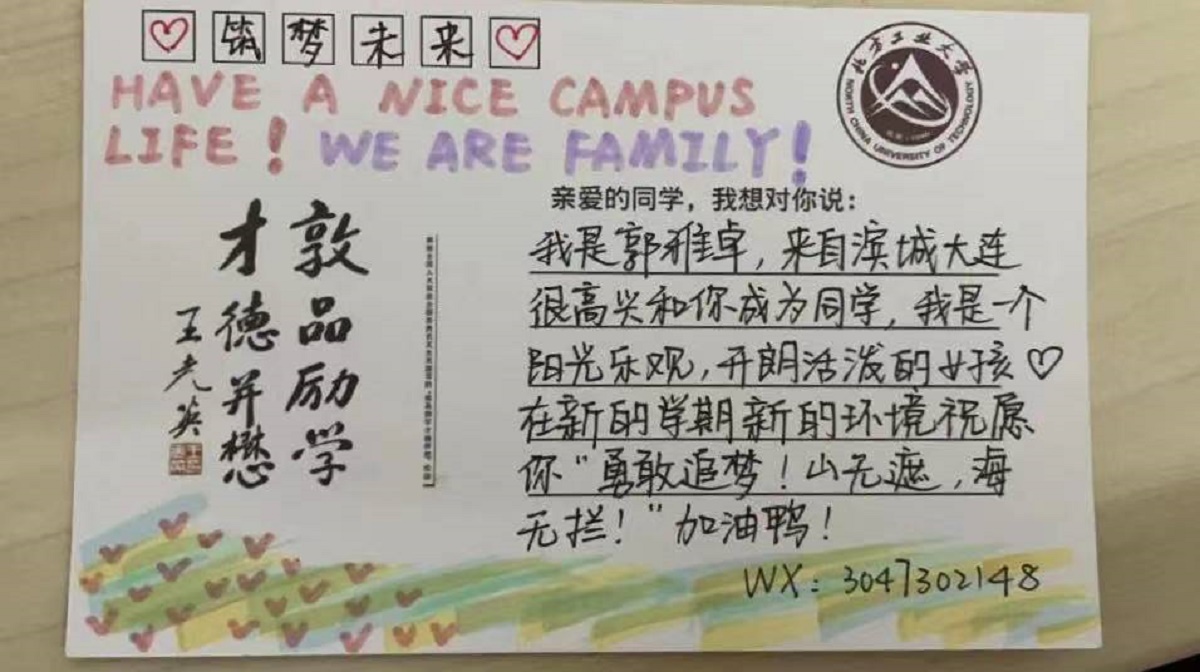 筑梦未来
HAVE A NICE CAMPUS
LIFE! WE ARE FAMILY!
北方工业大学
NORTH CHINA UNIVERSITY OF TECHNOLOGY
敦品励学
才德并懋
王光英
亲爱的同学，我想对你说：
我是郭雅卓，来自滨城大连
很高兴和你成为同学，我是一个
阳光乐观，开朗活泼的女孩♡
在新的学期新的环境祝愿
你“勇敢追梦！山无遮，海
无拦！”加油鸭！
WX：3047302148